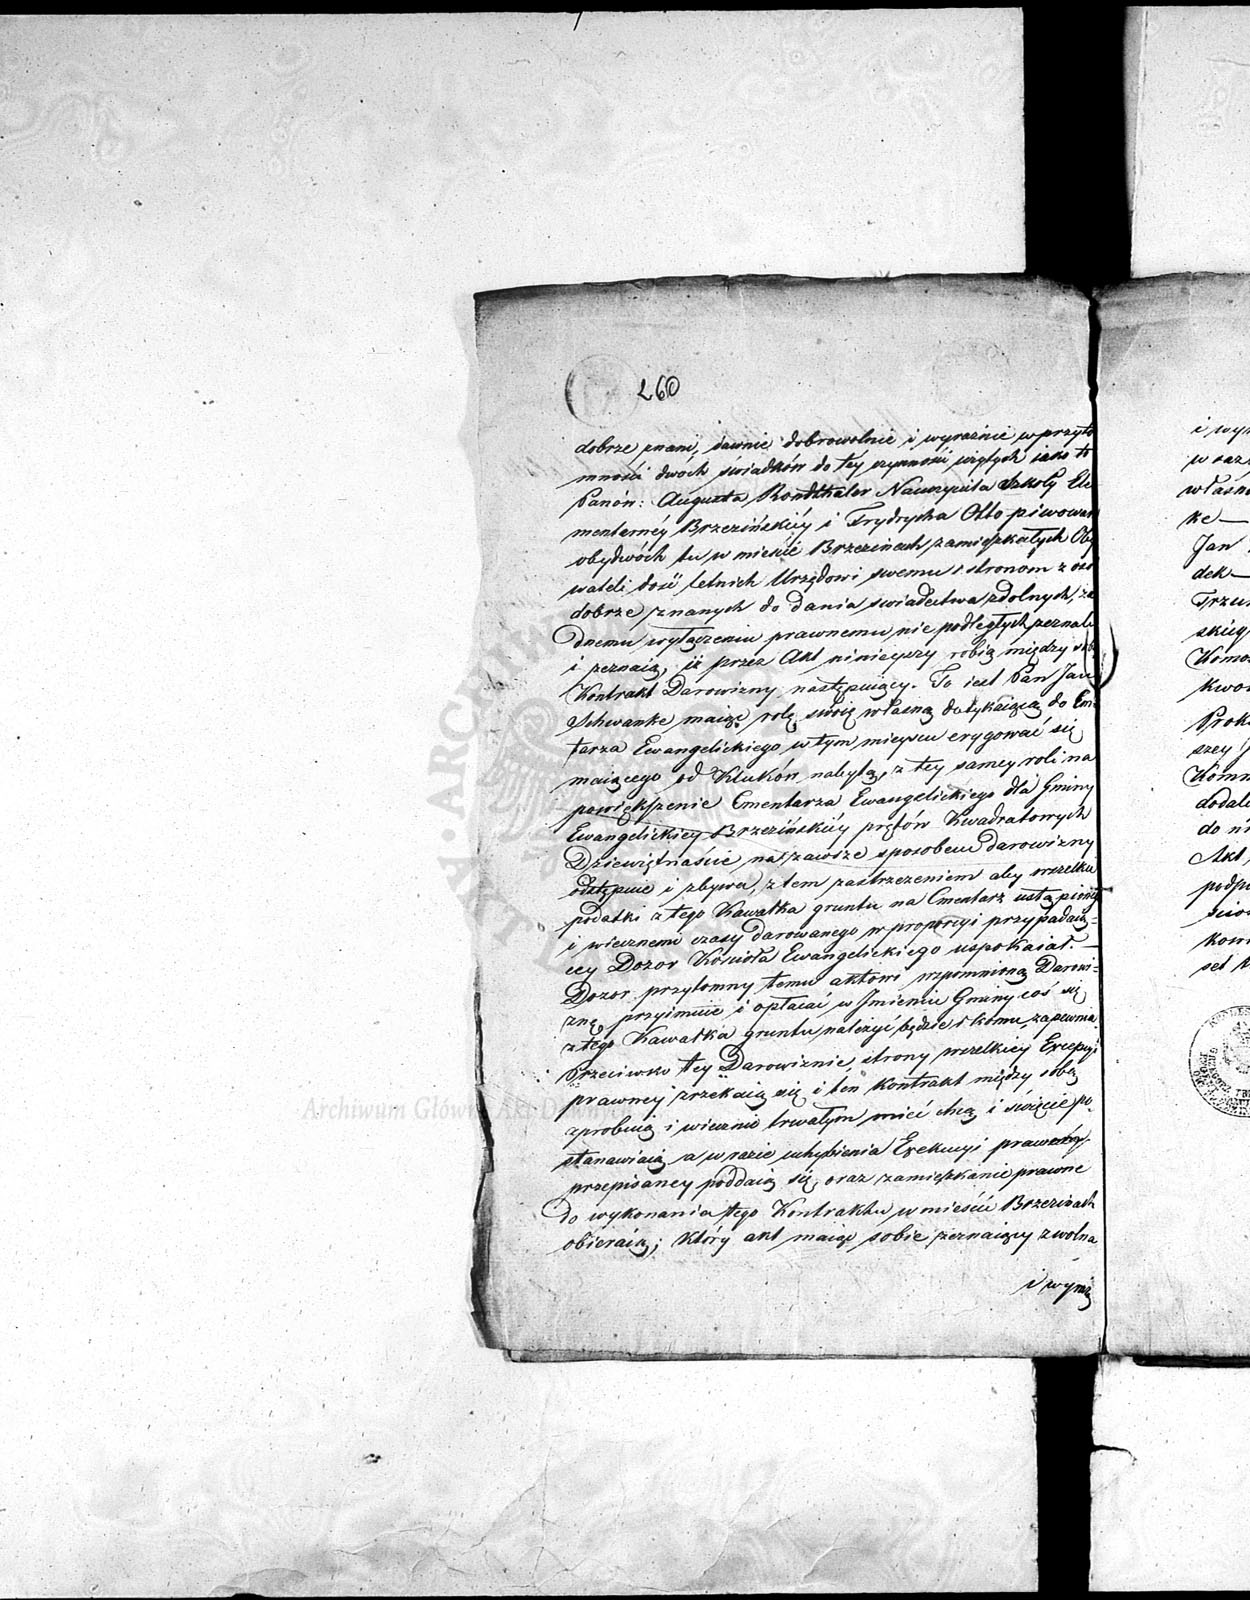 260
dobrze znani, jawnie dobrowolnie i wyraźnie w przyto
mności dwóch świadków do tey czynności wziętych iako to
Panów: Augusta Rondthaler Nauczyciela Szkoły Ele
mentarnéy Brzezińskiéy i Frydrycha Otto piwowara
obydwóch tu w mieście Brzezinach zamięszkałych Oby
wateli dość letnich Urzędowi swemu i stronom z oso
dobrze znanych do dania świadectwa zdolnych, ża
dnemu wyłączeniu prawnemu nie podległych zeznali
i zeznaią, iż przez Akt ninieyszy robią między sobą
Kontrakt Darowizny następuiący. To iest Pan Jan
Schwanke maiąc rolę swoią własną dotykaiącą do Cmę
tarza Ewangelickiego w tym mieyscu erygować się
maiącego od Kluków nabytą, z tey samey roli na
powiększenie Cmentarza Ewangelickiego dla Gminy
Ewangelickiey Brzezińskiéy prętów Kwadratowych
Dziewiętnaście na zawsze sposobem darowizny
odstępuie i zbywa, z tem zastrzeżeniem aby wszelkie
podatki z tego Kawałka gruntu na Cmentarz ustąpionego
i wiecznemi czasy darowanego w proporcyi przypadaią=
cey Dozor Kościoła Ewangelickiego uspokaiał. —
Dozor przytomny temu aktowi wzpomnioną Darowi=
znę przyimuie i opłacać w Jmieniu Gminy coś się
z tego Kawałka gruntu należyć będzie i komu, zapewnia.
Przeciwko tey Darowiznie, strony wszelkiey Excepcyi
prawney zrzekaią się i ten Kontrakt między sobą
zrobiony i wiecznie trwałym mieć chcą i święcie po-
stanawiaią a w razie uchybienia Exekucyi prawem
przepisaney poddaią się, oraz zamięszkanie prawne
do wykonania tego Kontraktu w mieście Brzezinach
obieraią; który akt maiąc sobie zeznaiący zwolna
i wyraź
i wyr
w raz
własno
ke —
Jan
dek —
Trzu
skieg
Komo
kwo
Prok
szey
Komm
dodal
do ni
Akt,
podp
scio
kom
set
Archiwum Główne Akt Dawnych